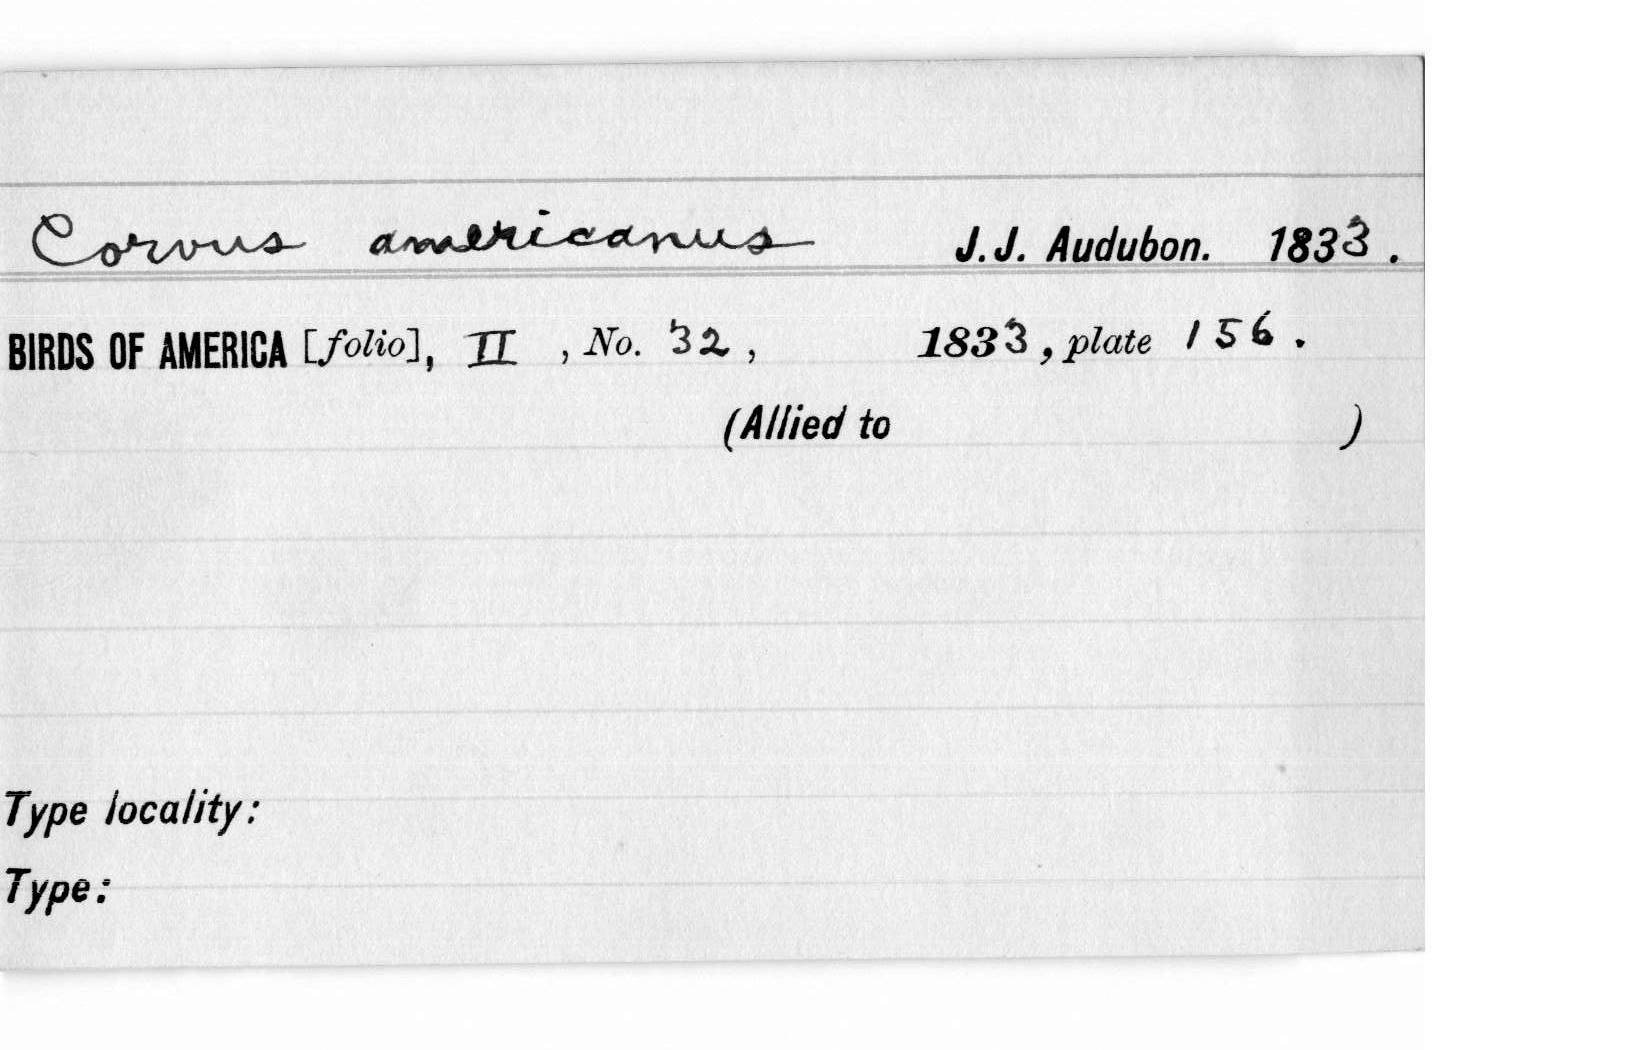 Corvus americanus J.J. Audubon. 1833.
BIRDS OF AMERICA [folio], II, No. 32, 1833, plate 156.
(Allied to )
Type locality:
Type: